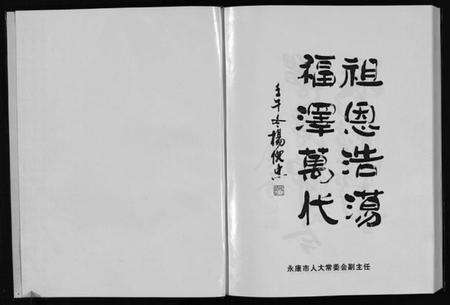 祖恩浩蕩
福澤萬代
壬午冬楊俊忠
永康市人大常委会副主任